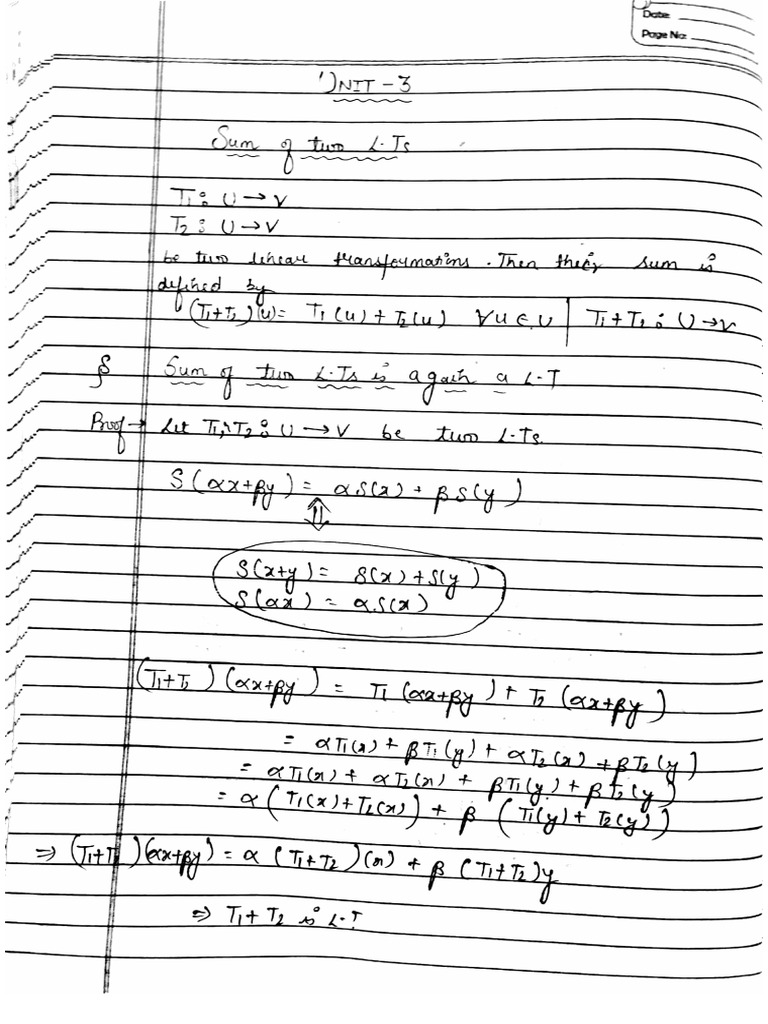 Date:
Page No:
UNIT - 3
Sum of two L.Ts
T1 : U → V
T2 : U → V
be two linear transformations. Then their sum is
defined by
(T1+T2)(u) = T1(u) + T2(u) ∀ u ∈ U | T1+T2 : U → V
Sum of two L.Ts is again a L.T
Proof → Let T1, T2 : U → V be two L.Ts.
S(αx+βy) = αS(x) + βS(y)
⇕
S(x+y) = S(x) + S(y)
S(αx) = αS(x)
(T1+T2)(αx+βy) = T1(αx+βy) + T2(αx+βy)
= αT1(x) + βT1(y) + αT2(x) + βT2(y)
= αT1(x) + αT2(x) + βT1(y) + βT2(y)
= α(T1(x)+T2(x)) + β(T1(y)+T2(y))
⇒ (T1+T2)(αx+βy) = α(T1+T2)(x) + β(T1+T2)y
⇒ T1+T2 is L.T